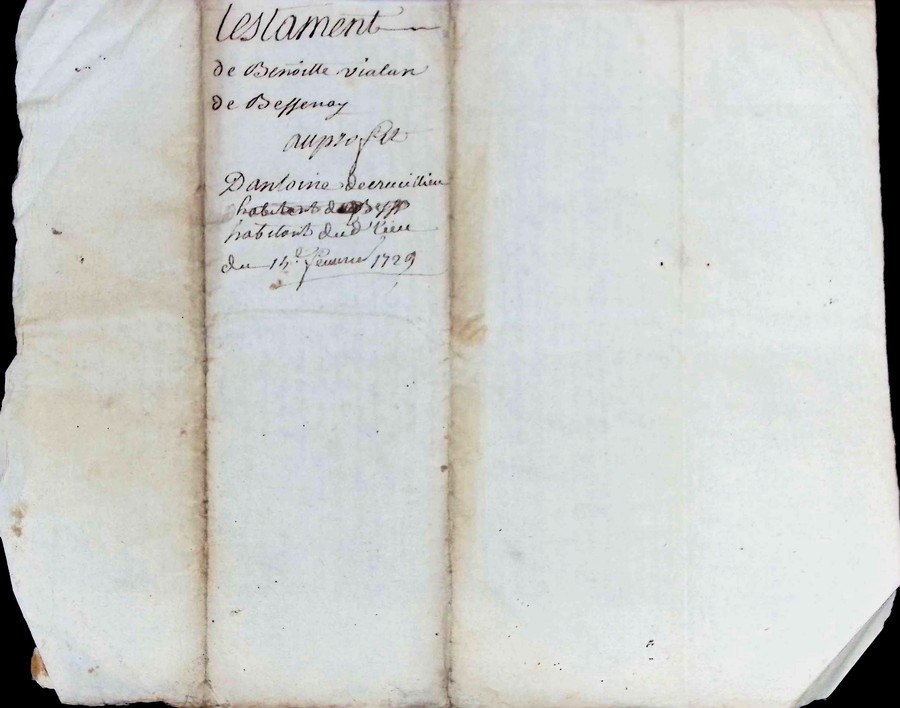 testament
de Benoitte vialan
de Bessenay
au profit
D'antoine decrucillieu
habitant du
habitant dud. lieu
du 14e. fevrier 1729